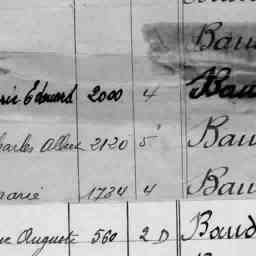 Baud
rie Edouard 2000 4 Bau
Charles Albert 2120 5 Bau
marie 1734 4 Bau
ue Auguste 560 2 D Baud